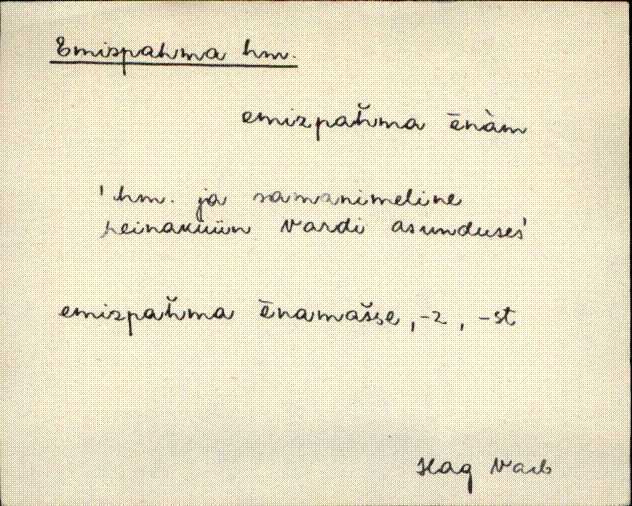 Emizpahma hm.
emizpaȟma ēnàm
'hm. ja samanimeline
heinaküün Vardi asunduses'
emizpaȟma ēnamašse, -z, -st
Hag Vard